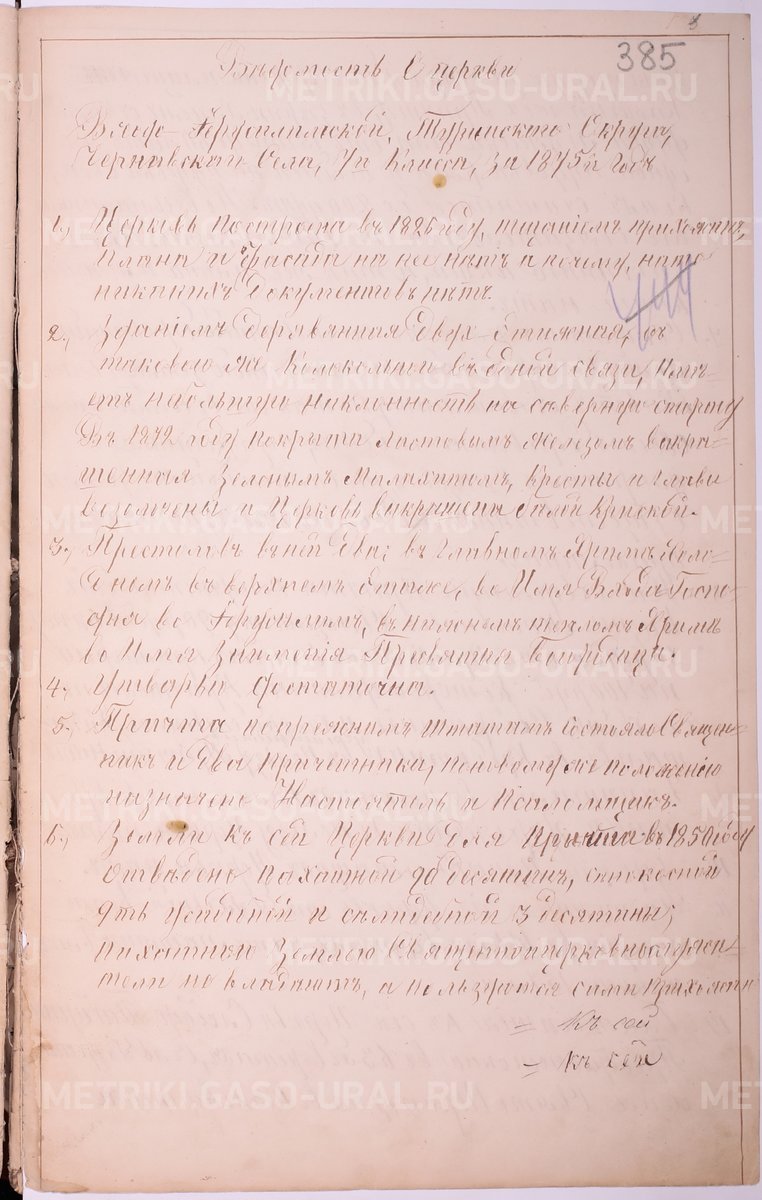 385
Вѣдомость О церкви
Входо-Іерусалимской, Туринскаго Округа,
Чернавскаго Села, 7го Класса, за 1875й годъ
1., Церковь построена въ 1825 году, тщаніемъ прихожанъ,
плана и фасада на нее нѣтъ а почему, на то
никакихъ документовъ нѣтъ.
2., Зданіемъ деревянная двух-этажная, съ
таковою же Колокольнею въ одной связи, имѣ-
етъ небольшую наклонность на сѣверную сторону
Въ 1872 году покрыта листовымъ железомъ выкра-
шенная зеленымъ Малахитомъ, кресты и главы
возолочены и Церковь выкрашена белой Краской.
3., Престоловъ въ ней два; въ главномъ Храмѣ холо-
дномъ въ верхнемъ этаже, во Имя Входа Госпо-
дня во Іерусалимъ, въ нижнемъ тепломъ Храмѣ
во Имя Знаменія Пресвятыя Богородицы.
4., Утварью достаточна.
5., Причта по прежнимъ штатамъ состояло Священ-
никъ и два причетника, по новому же положенію
назначено Настоятель и Псаломщикъ.
6., Земли къ сей Церкви для Причта въ 1850 году
отведено пахатной десятинъ, сенокосной
усадебной и селидебной 3 десятины;
пахатною Землею Священноцерковнослужи-
тели не владеютъ, а пользуются сами прихожане
= къ сей
= къ сей
METRIKI.GASO-URAL.RU